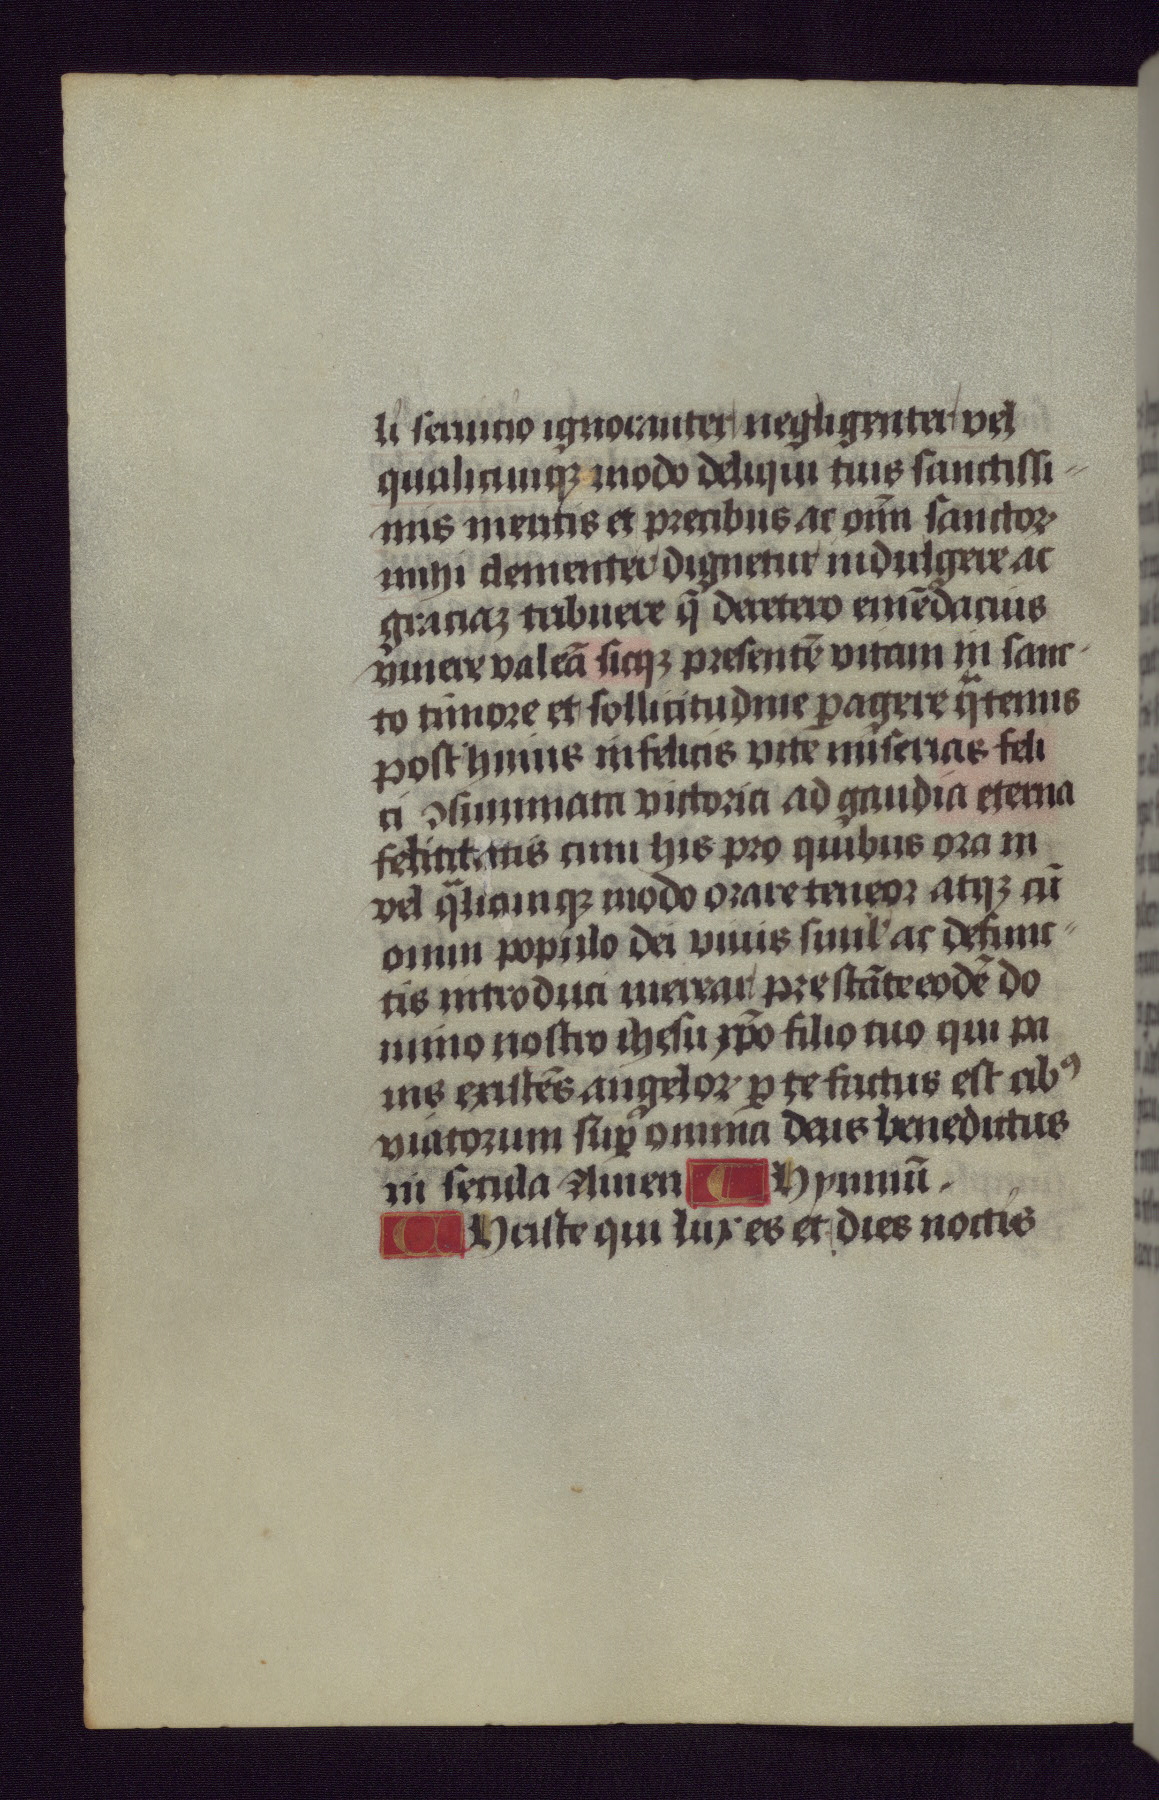 li seruicio ignoranter negligenter vel
qualicumqꝫ modo deliqui tuis sanctissi
mis meritis et precibus ac om̄ sanctoꝝ
mihi clementer dignetur indulgere ac
graciaꝫ tribuere q̄ deretero emēdacius
viuere valeā sicqꝫ presentē vitam in sanc
to timore et sollicitudine ꝑagere qͣtenus
post huius infelicis vite miserias feli
ci ꝯsummata victoria ad gaudia eterna
felicitatis cum his pro quibus ora in
vel qͣlicumqꝫ modo orare teneor atqꝫ cū
omni populo dei viuis simul ac defunc
tis introduci merear prestāte eodē do
mino nostro ihesu xp̄o filio tuo qui pa
nis existēs angeloꝝ ꝑ te factus est cibꝰ
viatorum suꝑ omnia deus benedictus
in secula Amen C Hymnū .
C Hriste qui lux es et dies noctis